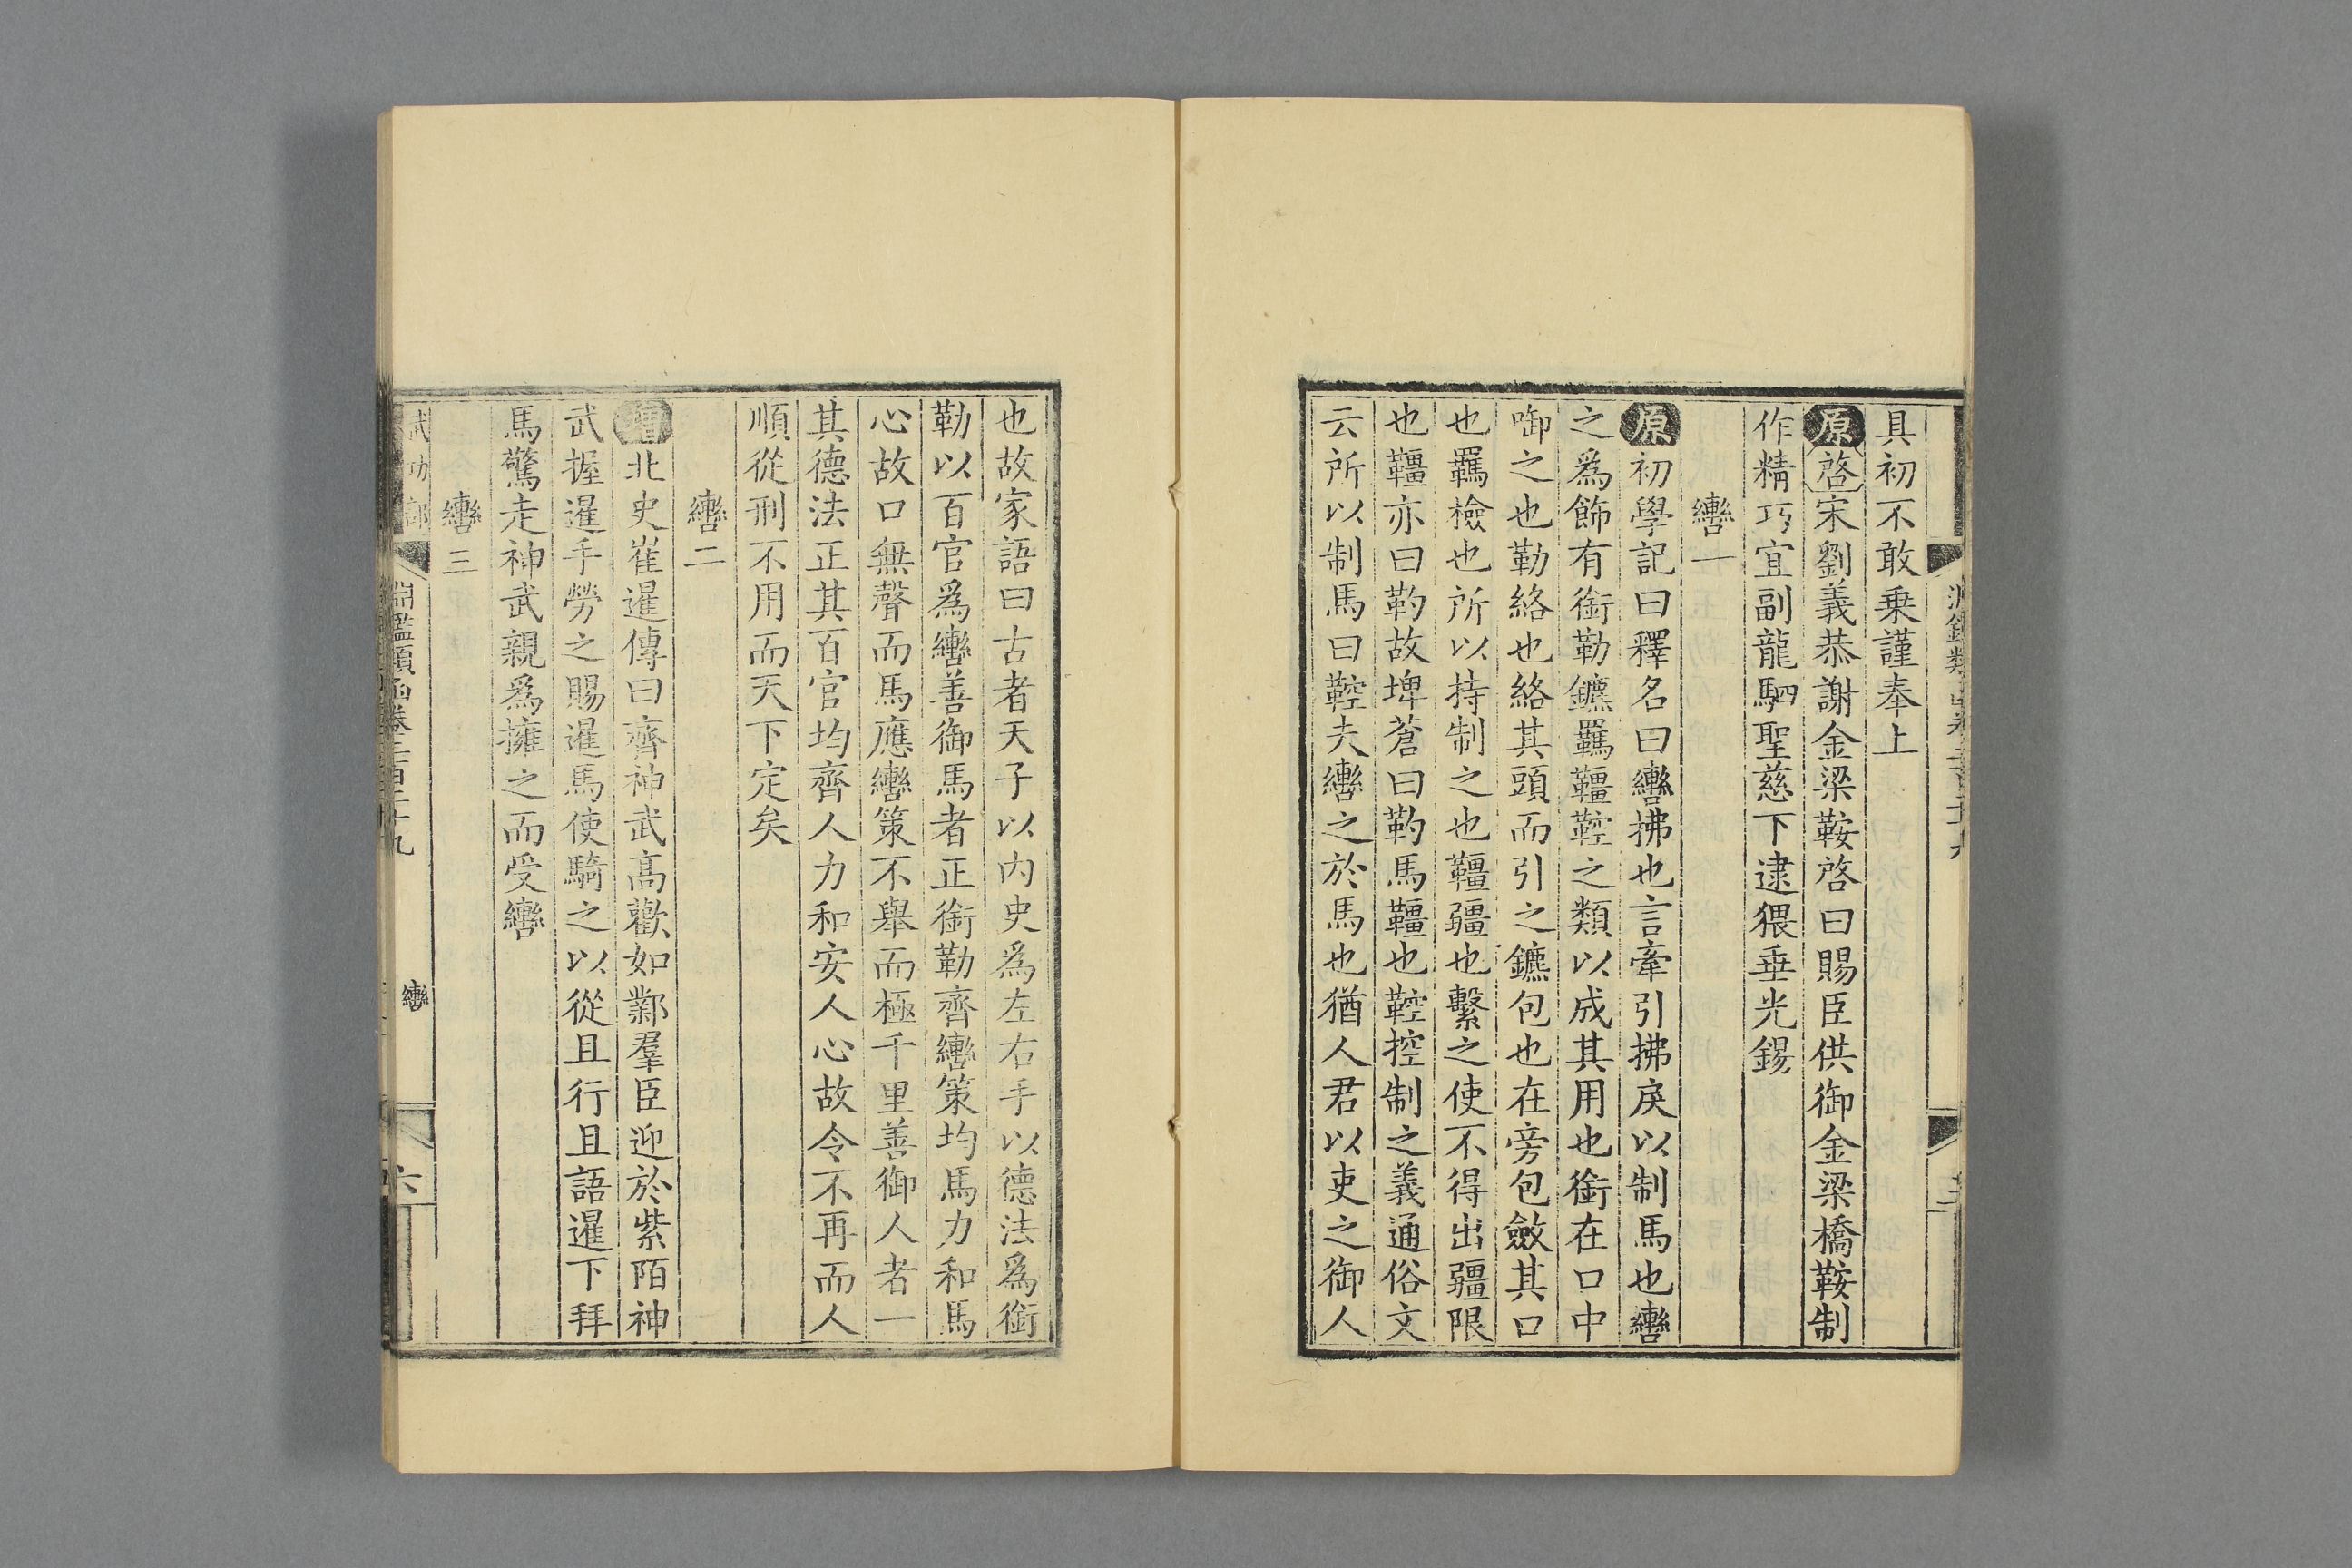 具初不敢乗謹奉上
原啓宋劉義恭謝金梁鞍啓曰賜臣供御金梁橋鞍制
作精巧宜副龍駟聖慈下逮猥垂光錫
轡一
原初學記曰釋名曰轡拂也言牽引拂戾以制馬也轡
之爲飾有銜勒鑣羈韁鞚之類以成其用也銜在口中
啣之也勒絡也絡其頭而引之鑣包也在旁包斂其口
也羈檢也所以持制之也韁疆也繫之使不得出疆限
也韁亦曰靮故埤蒼曰靮馬韁也鞚控制之義通俗文
云所以制馬曰鞚夫轡之於馬也猶人君以吏之御人
也故家語曰古者天子以内史爲左右手以德法爲銜
勒以百官爲轡善御馬者正銜勒齊轡策均馬力和馬
心故口無聲而馬應轡策不舉而極千里善御人者一
其德法正其百官均齊人力和安人心故令不再而人
順從刑不用而天下定矣
轡二
增北史崔暹傳曰齊神武高歡如鄴羣臣迎於紫陌神
武握暹手勞之賜暹馬使騎之以從且行且語暹下拜
馬驚走神武親爲擁之而受轡
轡三
武功部
淵鑑類函卷二百二十九
轡
六